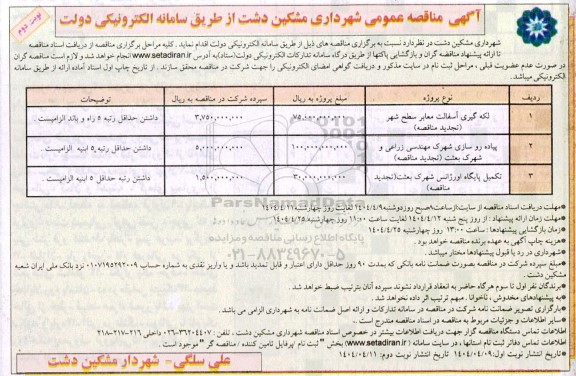 آگهی مناقصه عمومی شهرداری مشکین دشت از طریق سامانه الکترونیکی دولت
نوبت دوم
شهرداری مشکین دشت در نظر دارد نسبت به برگزاری مناقصه های ذیل از طریق سامانه الکترونیکی دولت اقدام نماید . کلیه مراحل برگزاری مناقصه از دریافت اسناد مناقصه
تا ارائه پیشنهاد مناقصه گران و بازگشایی پاکتها از طریق درگاه سامانه تدارکات الکترونیکی دولت(ستاد)به آدرس www.setadiran.ir انجام خواهد شد و لازم است مناقصه گران
در صورت عدم عضویت قبلی ، مراحل ثبت نام در سایت مذکور و دریافت گواهی امضای الکترونیکی را جهت شرکت در مناقصه محقق سازند . از تاریخ چاپ اول اسناد آماده ارائه از طریق سامانه
الکترونیکی میباشد.
ردیف نوع پروژه مبلغ پروژه به ریال سپرده شرکت در مناقصه به ریال توضیحات
۱ لکه گیری آسفالت معابر سطح شهر (تجدید مناقصه) ۷۵،۰۰۰،۰۰۰،۰۰۰ ۳،۷۵۰،۰۰۰،۰۰۰ داشتن حداقل رتبه ۵ راه و باند الزامیست .
۲ پیاده رو سازی شهرک مهندسی زراعی و شهرک بعثت (تجدید مناقصه) ۱۰۰،۰۰۰،۰۰۰،۰۰۰ ۵،۰۰۰،۰۰۰،۰۰۰ داشتن حداقل رتبه ۵ ابنیه الزامیست .
۳ تکمیل پایگاه اورژانس شهرک بعثت(تجدید مناقصه) ۳۰،۰۰۰،۰۰۰،۰۰۰ ۱،۵۰۰،۰۰۰،۰۰۰ داشتن رتبه ۵ ابنیه الزامیست .
ParsNamadData
پایگاه اطلاع رسانی مناقصه و مزایده
۰۲۱-۸۸۳۴۹۶۷۰-۵
●مهلت دریافت اسناد مناقصه از سایت:از ساعت۸صبح روزدوشنبه۱۴۰۴/۴/۹ لغایت روز چهارشنبه۱۴۰۴/۴/۱۱
●مهلت زمان ارائه پیشنهاد : از روز پنج شنبه ۱۴۰۴/۴/۱۲ لغایت ساعت ۱۱:۰۰ روز چهارشنبه ۱۴۰۴/۴/۲۵
●زمان بازگشایی پیشنهادها : ساعت ۱۳:۰۰ روز چهارشنبه ۱۴۰۴/۴/۲۵
●هزینه چاپ آگهی به عهده برنده مناقصه خواهد بود .
●شهرداری در رد یا قبول پیشنهادها مختار میباشد .
●مبلغ سپرده شرکت در مناقصه بصورت ضمانت نامه بانکی که بمدت ۹۰ روز حداقل دارای اعتبار و قابل تمدید باشد و یا واریز نقدی به شماره حساب ۰۱۰۷۱۹۵۲۹۲۰۰۹ نزد بانک ملی ایران شعبه
مشکین دشت .
●برندگان نفر اول تا سوم هرگاه حاضر به انعقاد قرارداد نشوند سپرده آنان بترتیب ضبط خواهد شد .
●به پیشنهادهای مخدوش ، ناخوانا ، مبهم ترتیب اثر داده نخواهد شد .
●بارگذاری تصویر ضمانت نامه شرکت در مناقصه در سامانه تدارکات و ارائه اصل ضمانت نامه به شهرداری الزامی می باشد .
●سایر اطلاعات و جزئیات مربوط به مناقصه در اسناد مناقصه مندرج است .
اطلاعات تماس دستگاه مناقصه گزار جهت دریافت اطلاعات بیشتر در خصوص اسناد مناقصه شهرداری مشکین دشت . تلفن : ۰۲۶-۳۶۲۰۴۴۰۷ داخلی ۲۱۶-۲۱۷-۲۱۸
اطلاعات تماس دفاتر ثبت نام استانها ، در سایت سامانه (www.setadiran.ir) بخش " ثبت نام /پروفایل تامین کننده / مناقصه گر " موجود است .
تاریخ انتشار نوبت اول: ۱۴۰۴/۰۴/۰۹ تاریخ انتشار نوبت دوم: ۱۴۰۴/۰۴/۱۱
علی سلگی- شهردار مشکین دشت